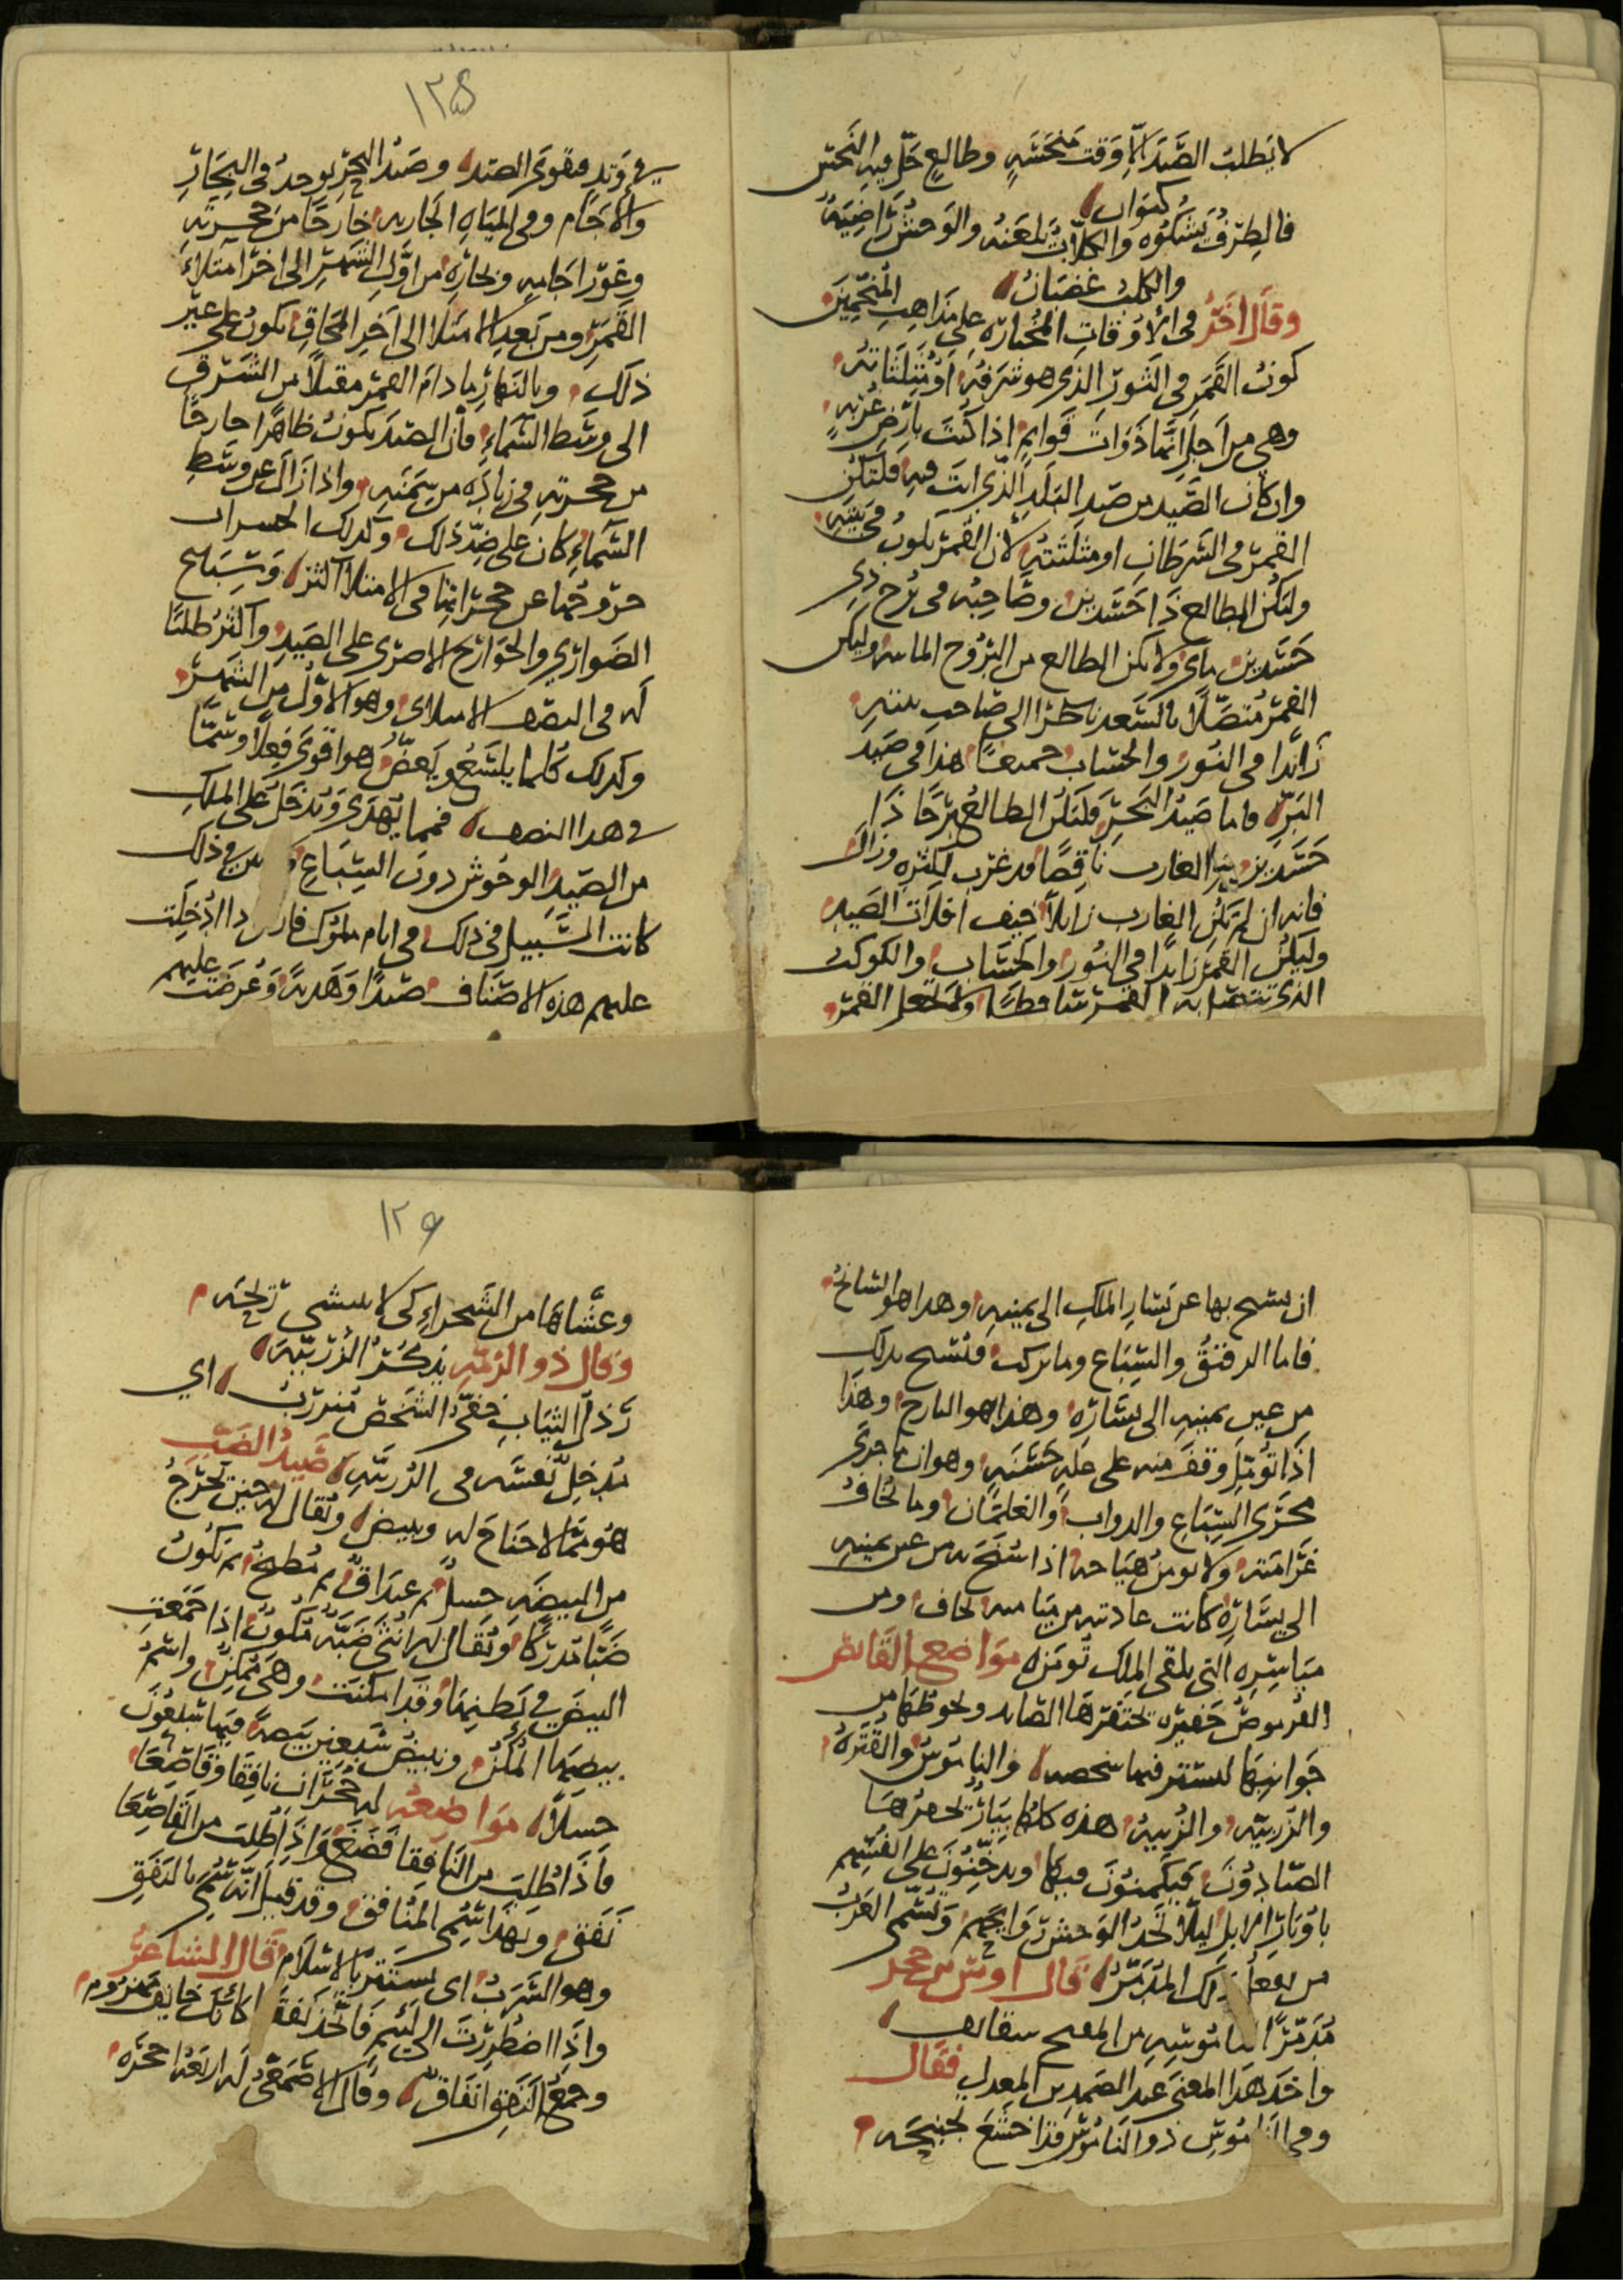 لا يَطلبُ الصَّيدَ الّا وقتَ مَنحَسَةٍ وطالعٍ حَلَّ فيهِ النَحسُ
كيوان
فالطِرفُ يَشكُوه والكلّابُ يَلعَنُه والوَحشُ رَاضيَةٌ
والكلبُ غضبَانُ
وقالَ اخَرُ في الاوقاتِ المُختارَه على مذَاهِبِ المُنَجِّمِينَ
كَونُ القَمَرِ في الثَورِ الذي هو شَرَفُهُ اوْ مُثَلَّثَاتُه
وهي من اَجلِ انَّها ذَوَاتُ قَوايم اذا كنتَ بارضٍ
وان كان الصَّيد من صَيدِ البَلَدِ الّذي انتَ فيهِ فليَكُن
القمرُ في السَرطانِ او مثلثتهِ لانّ القَمرَ يكونُ في بَيتِهِ
وليَكُن الطالع ذَا جَسَدينِ وصَاحِبُه في بُرجٍ ذي
جَسَدينِ ولا يكن الطالع من البُرُوج المائيه وليكن
القمرُ مُتصِّلًا بالسَعد ناظرًا الى صَاحبِ بيته
زَائدا في النُور والحسَاب جميعًا هذا في صَيد
البَرّ واما صَيدُ البَحرِ فليَكُن الطالعُ بُرجًا ذَا
جَسَدَين الغارب ناقصًا
فانه ان لم يَكُنِ الغارب زايلًا خيف افلاتُ الصَيدِ
وليَكُن القَمَرُ زايدًا في النُور والحسَاب والكوكبُ
الذي يتصل به القمر سَاقطًا ولا تجعل القمرَ
١٢٥
في وَتِدٍ فيقوَى الصيد وصَيدُ البَحرِ يوجدُ في البحَارِ
والآجَام وفي الميَاهِ الجاريه خارجًا من جُحرته
وغَور اجَامِهِ وبحارِهِ من اوّلِ الشَهرِ الى اخرِ امتلاءِ
القَمَر ومن بَعدِ الامتلاء الى آخرِ المحَاقِ يكونُ على غيرِ
ذلك وبالنَهارِ ما دامَ القمرُ مقبلًا من الشَرق
الى وسَط السَماءِ فانّ الصيدَ يكونُ ظاهرًا خارجًا
من جحرته في زيادَه من سِمَنِهِ واذا زالَ عن وسَطِ
السَّماءِ كان على ضِدّ ذلك وكذلك الحسرات
خروجُها عن جحراتِها في الامتلاء اكثر وسِبَاع
الضَوارِي والجَوارِح الاضرى على الصَيدِ واكثرُ طلبًا
له في النصف الامتلائي وهو الاوّلُ من الشَهرِ
وكذلك كلما يلسَعُ ويَعَضُّ هو اقوَى فِعلًا وسَمًّا
في هذا النصف فيما يُهدَى ويُدخَلُ على الملكِ
من الصَيدِ الوحُوش دونَ السِبَاعِ
كانت السَّبيل في ذلك في ايام ملوك فارس اذا اُدخِلَت
عليهم هذه الاصنَاف صَيدًا وَهَديَةً وعُرِضَت عليهم
ان يسنح بها عن يَسَارِ الملكِ الى يمينِهِ وهذا هو السَانحُ
فاما الرقيقُ والسِّبَاع وما يركب فتُسنح بذلك
من عن يمينِهِ الى يسَارِهِ وهذا هو البارح وهذَا
اذَا تُؤمّلَ وقفَ منه على علهٍ حَسَنَةٍ وهو ان ما جرَى
مَجرَى السِّبَاعِ والدواب والغلمَان وما تُخَافُ
عَرامَته ولا يومنُ هيَاجه اذا سُنحَ به من عن يمينِهِ
الى يسَارِه كانت عادته من ميَامنه تخاف ومن
ميَاسِرِهِ التي تلقى الملك تُومَن مَواضع القَانص
القُرموصُ حَفيرَه يحتَفرُها الصَايد ويحوطُها من
جَوانبها ليستتر فيها شخصه والنامُوسُ والقُترَهُ
والزَربيّه والزُبية هذه كلها بيَانٌ يحفرُها
الصَيّادُونَ فيَكمِنُونَ فيها ويدخِّنُونَ على انفُسِهم
باوبَارِ الابل ليلًا تَجدُ الوَحشُ رَوَايحَهم وتُسمّي العَربُ
من يفعل ذلك المُدَمِّر قال اوسُ بن حجر
مُدَمِّرًا النامُوسِهِ من الصفيح سقايف
واخذ هذا المعنى عبد الصَمد بن المعذل فقال
وفي النامُوسِ ذو النامُوس قد اخشَعَ لجنبِحَه
١٢٦
وغشَّاهَا من الشَجراءِ كي لا ينشي رِيحَه
وقال ذو الرُمّة يَذكُرُ الزُربيّة
رَذلُ الثيَابِ خَفيُّ الشَخص مُنزَرِبُ اي
مُدخِلٌ نفسَه في الزُربيَّةِ صَيدُ الضَبّ
هُو مِمّا لا جنَاحَ له ويبيض ويُقال له حينَ يَخرُجُ
من البيضَه حِسلٌ ثم غَيدَاقٌ ثم مُطَبّخٌ ثم يَكُونُ
ضَبًّا مُدرِكًا ويُقال لهُ انثى ضَبَّةٌ مَكُونٌ اذا جَمَعت
البيضَ في بَطنِها وقد امكَنَت وهي مُمكِنٌ واسمُ
بيضِها المُكنُ وتبيضُ سَبعين بَيضَةً فيهَا سَبعُونَ
حِسلًا مَواضعُه له جُحرَانِ نافِقَا وقَاصِعَا
فاذَا طُلبَ من النَافِقا قصَعَ واذَا طُلِبَ من القَاصِعَا
نَفَقَ وبهَذَا سُمّي المُنافِق وقد قيلَ انه سُمّي بالنَفَقِ
وهو السَّرَبُ اي يَستتر بالاسلام قالَ الشاعرُ
واذَا اضطُرِرتَ الى لئيمٍ فاتَّخذ نَفَقًا كانّكَ خايفٌ مهزومُ
وجمعُ النَفَقِ انفَاقٌ وقال الاصمَعيُّ له اربعةُ اجحرَه